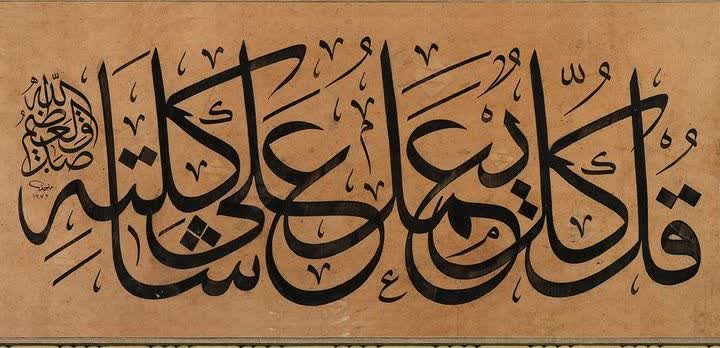 قُلْ كُلٌّ يَعْمَلُ عَلَى شَاكِلَتِهِ
صدق الله العظيم